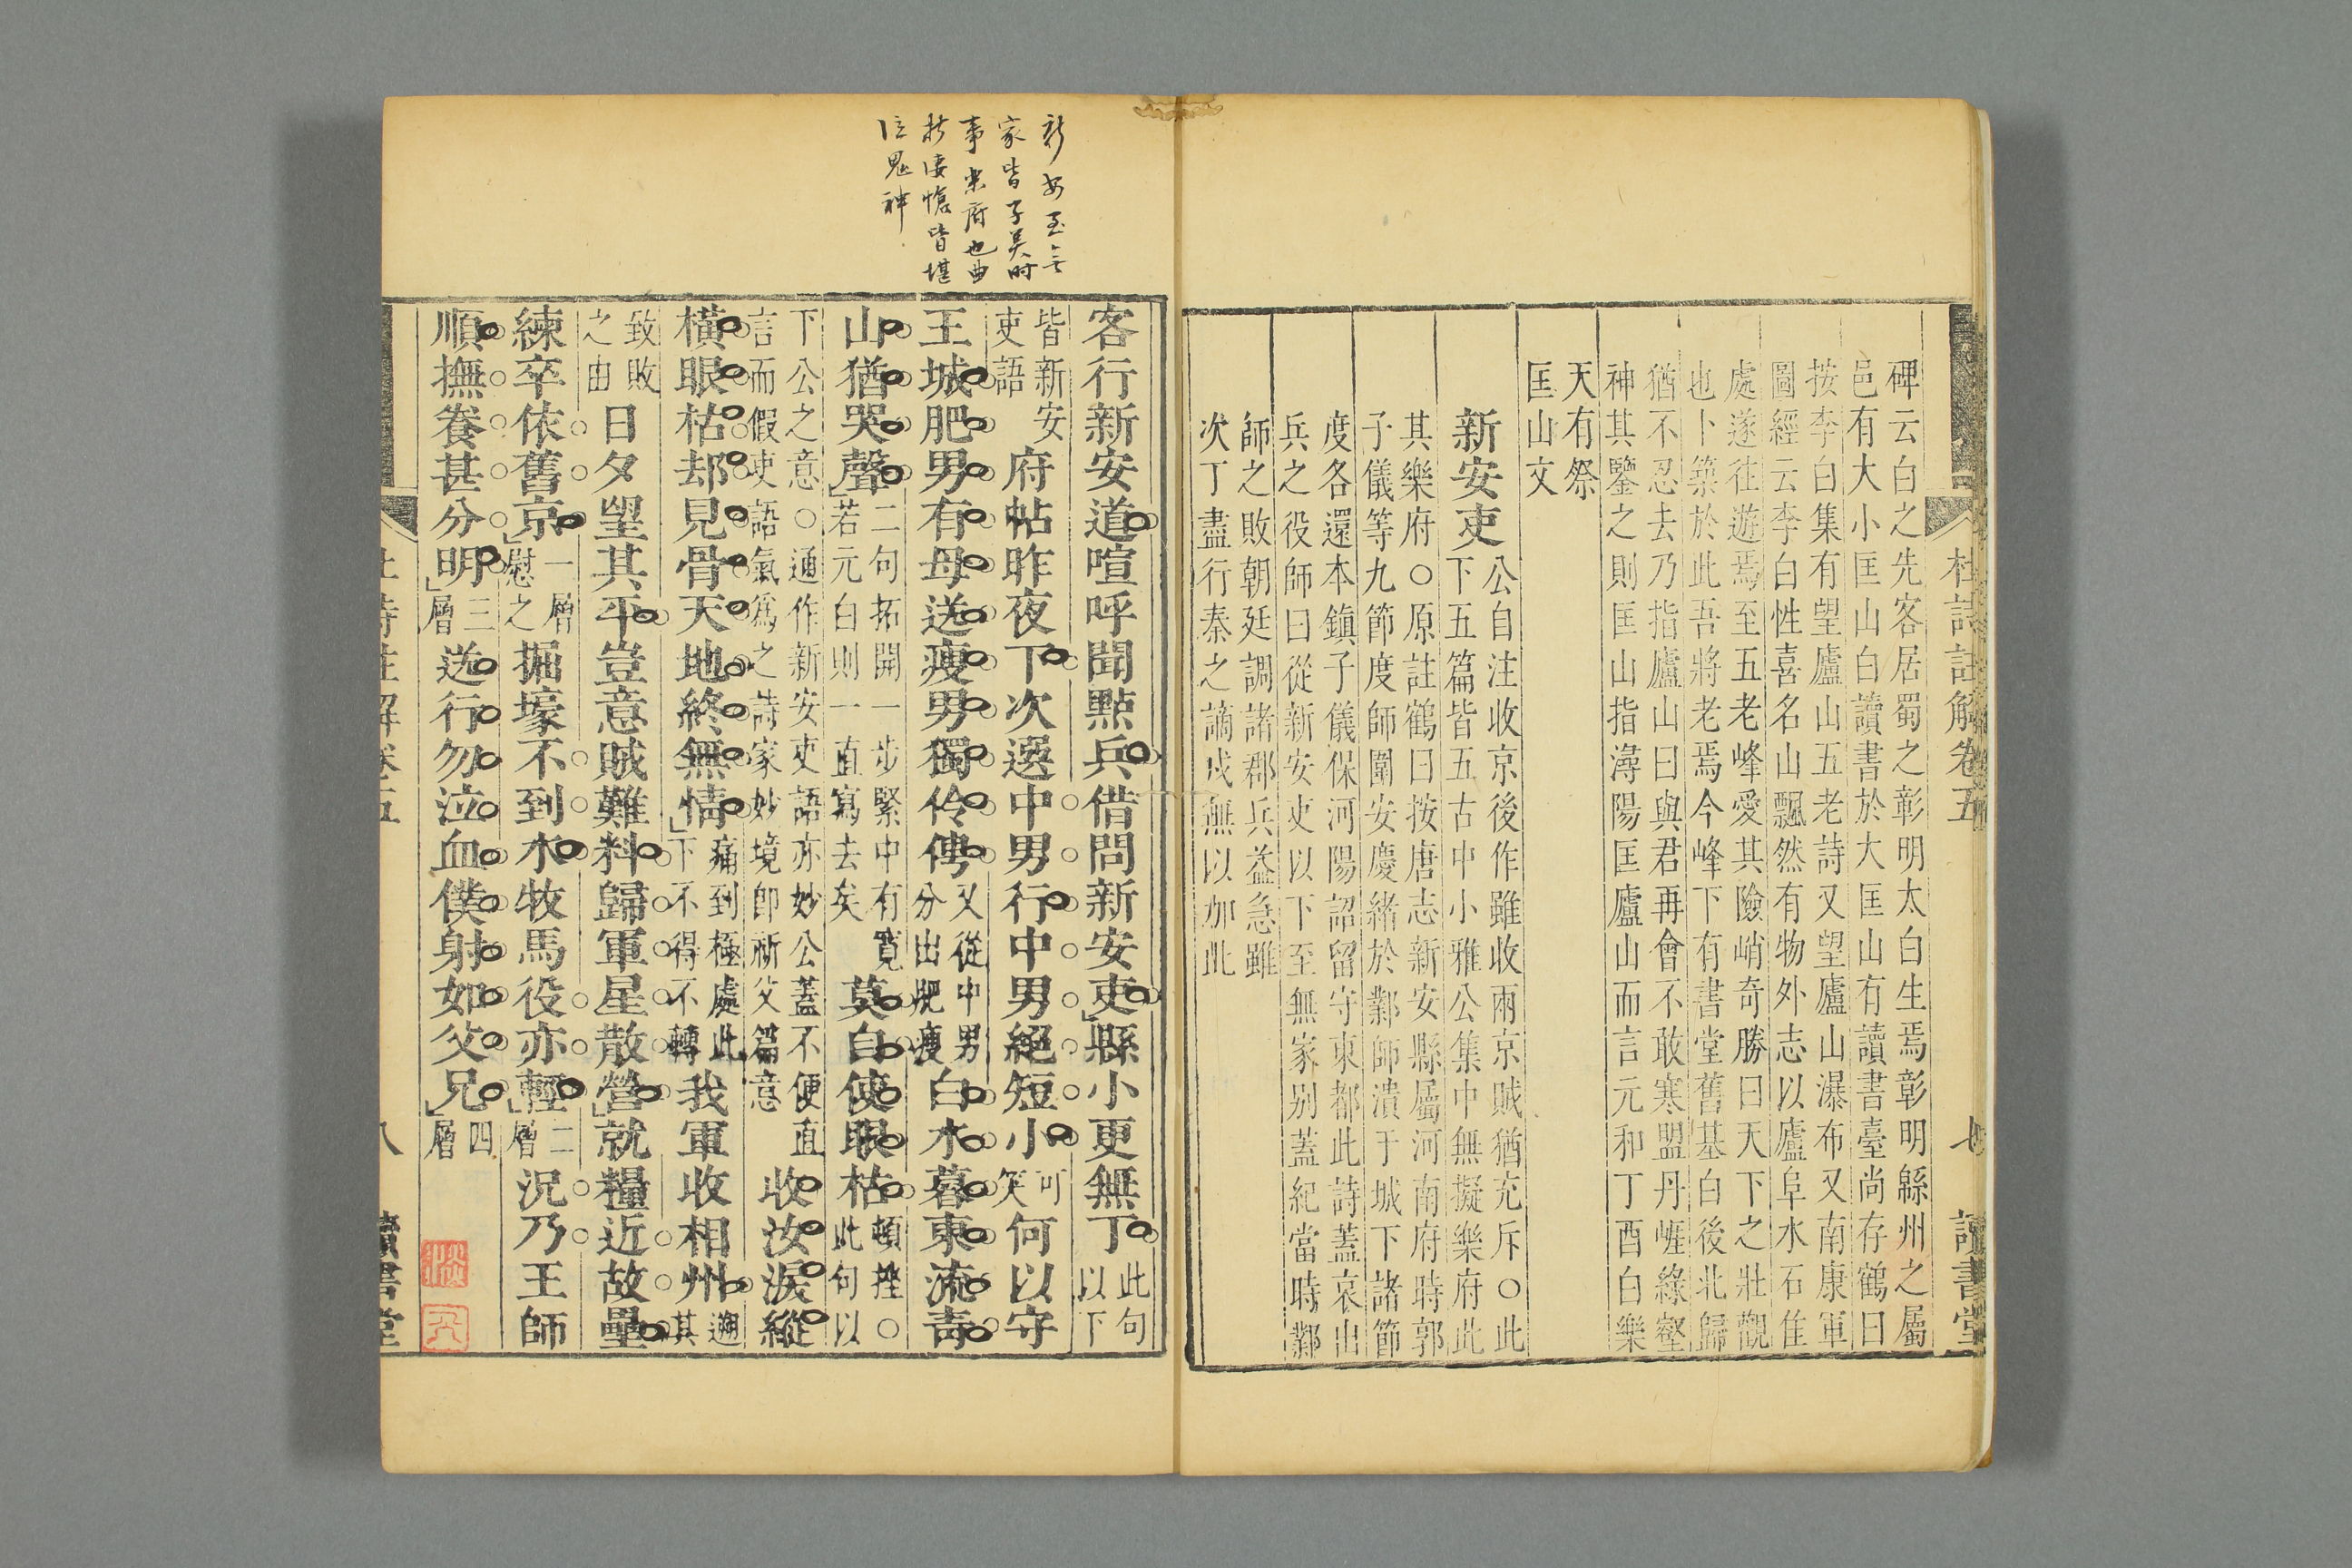 杜詩註解卷五
七
讀書堂
碑云白之先客居蜀之彰明太白生焉彰明縣州之屬
邑有大小匡山白讀書於大匡山有讀書臺尚存鶴曰
按李白集有望廬山五老詩又望廬山瀑布又南康軍
圖經云李白性喜名山飄然有物外志以廬阜水石佳
處遂往遊焉至五老峰愛其險峭奇勝曰天下之壯觀
也卜築於此吾將老焉今峰下有書堂舊基白後北歸
猶不忍去乃指廬山曰與君再會不敢寒盟丹崕綠壑
神其鑒之則匡山指潯陽匡廬山而言元和丁酉白樂
天有祭
匡山文
新安吏
公自注收京後作雖收兩京賊猶充斥○此
下五篇皆五古中小雅公集中無擬樂府此
其樂府○原註鶴曰按唐志新安縣屬河南府時郭
子儀等九節度師圍安慶緒於鄴師潰于城下諸節
度各還本鎮子儀保河陽詔留守東都此詩蓋哀出
兵之役師曰從新安吏以下至無家别蓋紀當時鄴
師之敗朝廷調諸郡兵益急雖
次丁盡行秦之謫戍無以加此
新安至無
家皆子美时
事樂府也曲
折悽愴皆堪
泣鬼神
客行新安道喧呼聞點兵借問新安吏縣小更無丁
此句
以下
皆新安
吏語
府帖昨夜下次選中男行中男絕短小
可
笑
何以守
王城肥男有母送瘦男獨伶俜
又從中男
分出肥瘦
白水暮東流青
山猶哭聲
二句拓開一步緊中有寬
若元白則一直寫去矣
莫自使眼枯
頓挫○
此句以
下公之意○通作新安吏語亦妙公蓋不便直
言而假吏語氣爲之詩家妙境卽祈父篇意
收汝淚縱
橫眼枯却見骨天地終無情
痛到極處此
下不得不轉
我軍收相州
遡
其
致敗
之由
日夕望其平豈意賊難料歸軍星散營就糧近故壘
練卒依舊京
一層
慰之
掘壕不到水牧馬役亦輕
二
層
況乃王師
順撫養甚分明
三
層
送行勿泣血僕射如父兄
四
層
杜詩註解卷五
八
讀書堂